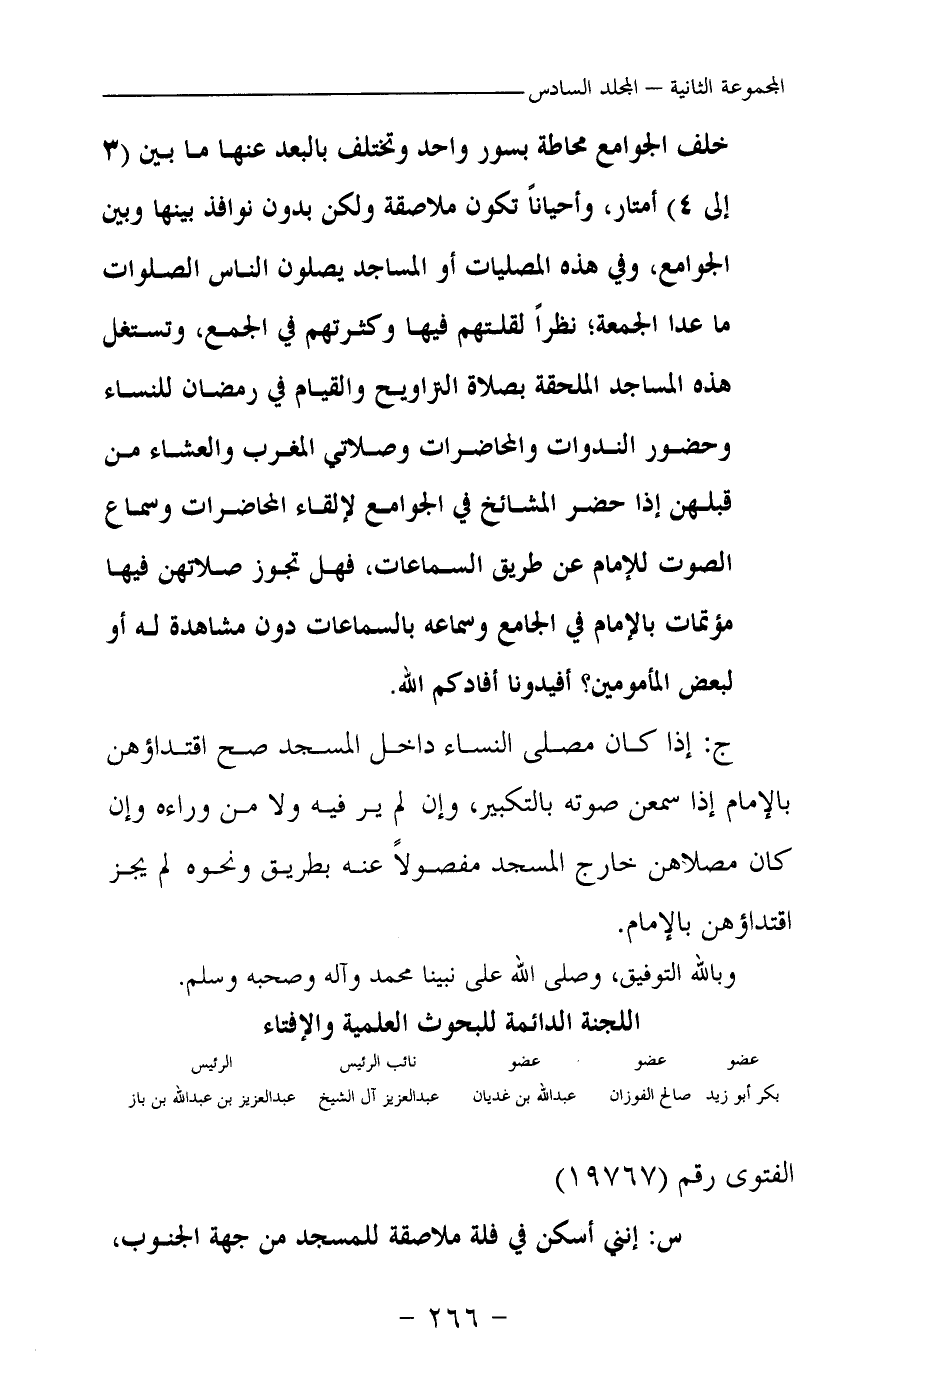 المجموعة الثانية – المجلد السادس
خلف الجوامع محاطة بسور واحد وتختلف بالبعد عنها ما بين (٣
إلى ٤) أمتار، وأحياناً تكون ملاصقة ولكن بدون نوافذ بينها وبين
الجوامع، وفي هذه المصليات أو المساجد يصلون الناس الصلوات
ما عدا الجمعة؛ نظراً لقلتهم فيها وكثرتهم في الجمع، وتستغل
هذه المساجد الملحقة بصلاة التراويح والقيام في رمضان للنساء
وحضور الندوات والمحاضرات وصلاتي المغرب والعشاء من
قبلهن إذا حضر المشائخ في الجوامع لإلقاء المحاضرات وسماع
الصوت للإمام عن طريق السماعات، فهل تجوز صلاتهن فيها
مؤتمات بالإمام في الجامع وسماعه بالسماعات دون مشاهدة له أو
لبعض المأمومين؟ أفيدونا أفادكم الله.
ج: إذا كان مصلى النساء داخل المسجد صح اقتداؤهن
بالإمام إذا سمعن صوته بالتكبير، وإن لم ير فيه ولا من وراءه وإن
كان مصلاهن خارج المسجد مفصولاً عنه بطريق ونحوه لم يجز
اقتداؤهن بالإمام.
وبالله التوفيق، وصلى الله على نبينا محمد وآله وصحبه وسلم.
اللجنة الدائمة للبحوث العلمية والإفتاء
عضو عضو عضو نائب الرئيس الرئيس
بكر أبو زيد صالح الفوزان عبدالله بن غديان عبدالعزيز آل الشيخ عبدالعزيز بن عبدالله بن باز
الفتوى رقم (١٩٧٦٧)
س: إنني أسكن في فلة ملاصقة للمسجد من جهة الجنوب،
– ٢٦٦ –